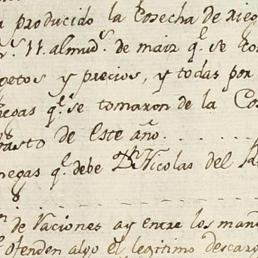 producido la Cosecha de riego
s. 11. almud.s de maiz q.e se to
getos y precios, y todas por
negas q.e se tomaron de la Co
pasto de Este año
negas q.e debe D.n Nicolas del
8
n de Raciones ay entre los man
ofenden algo el legitimo descarg